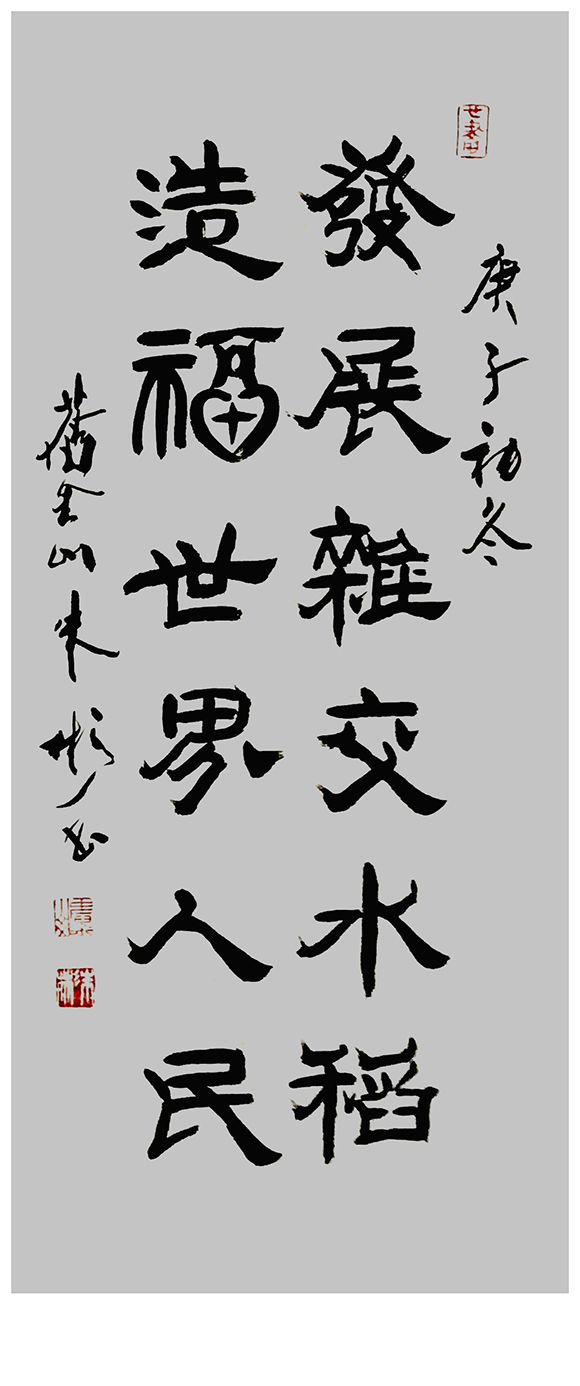 庚子初冬
發展雜交水稻
造福世界人民
舊金山朱彬書